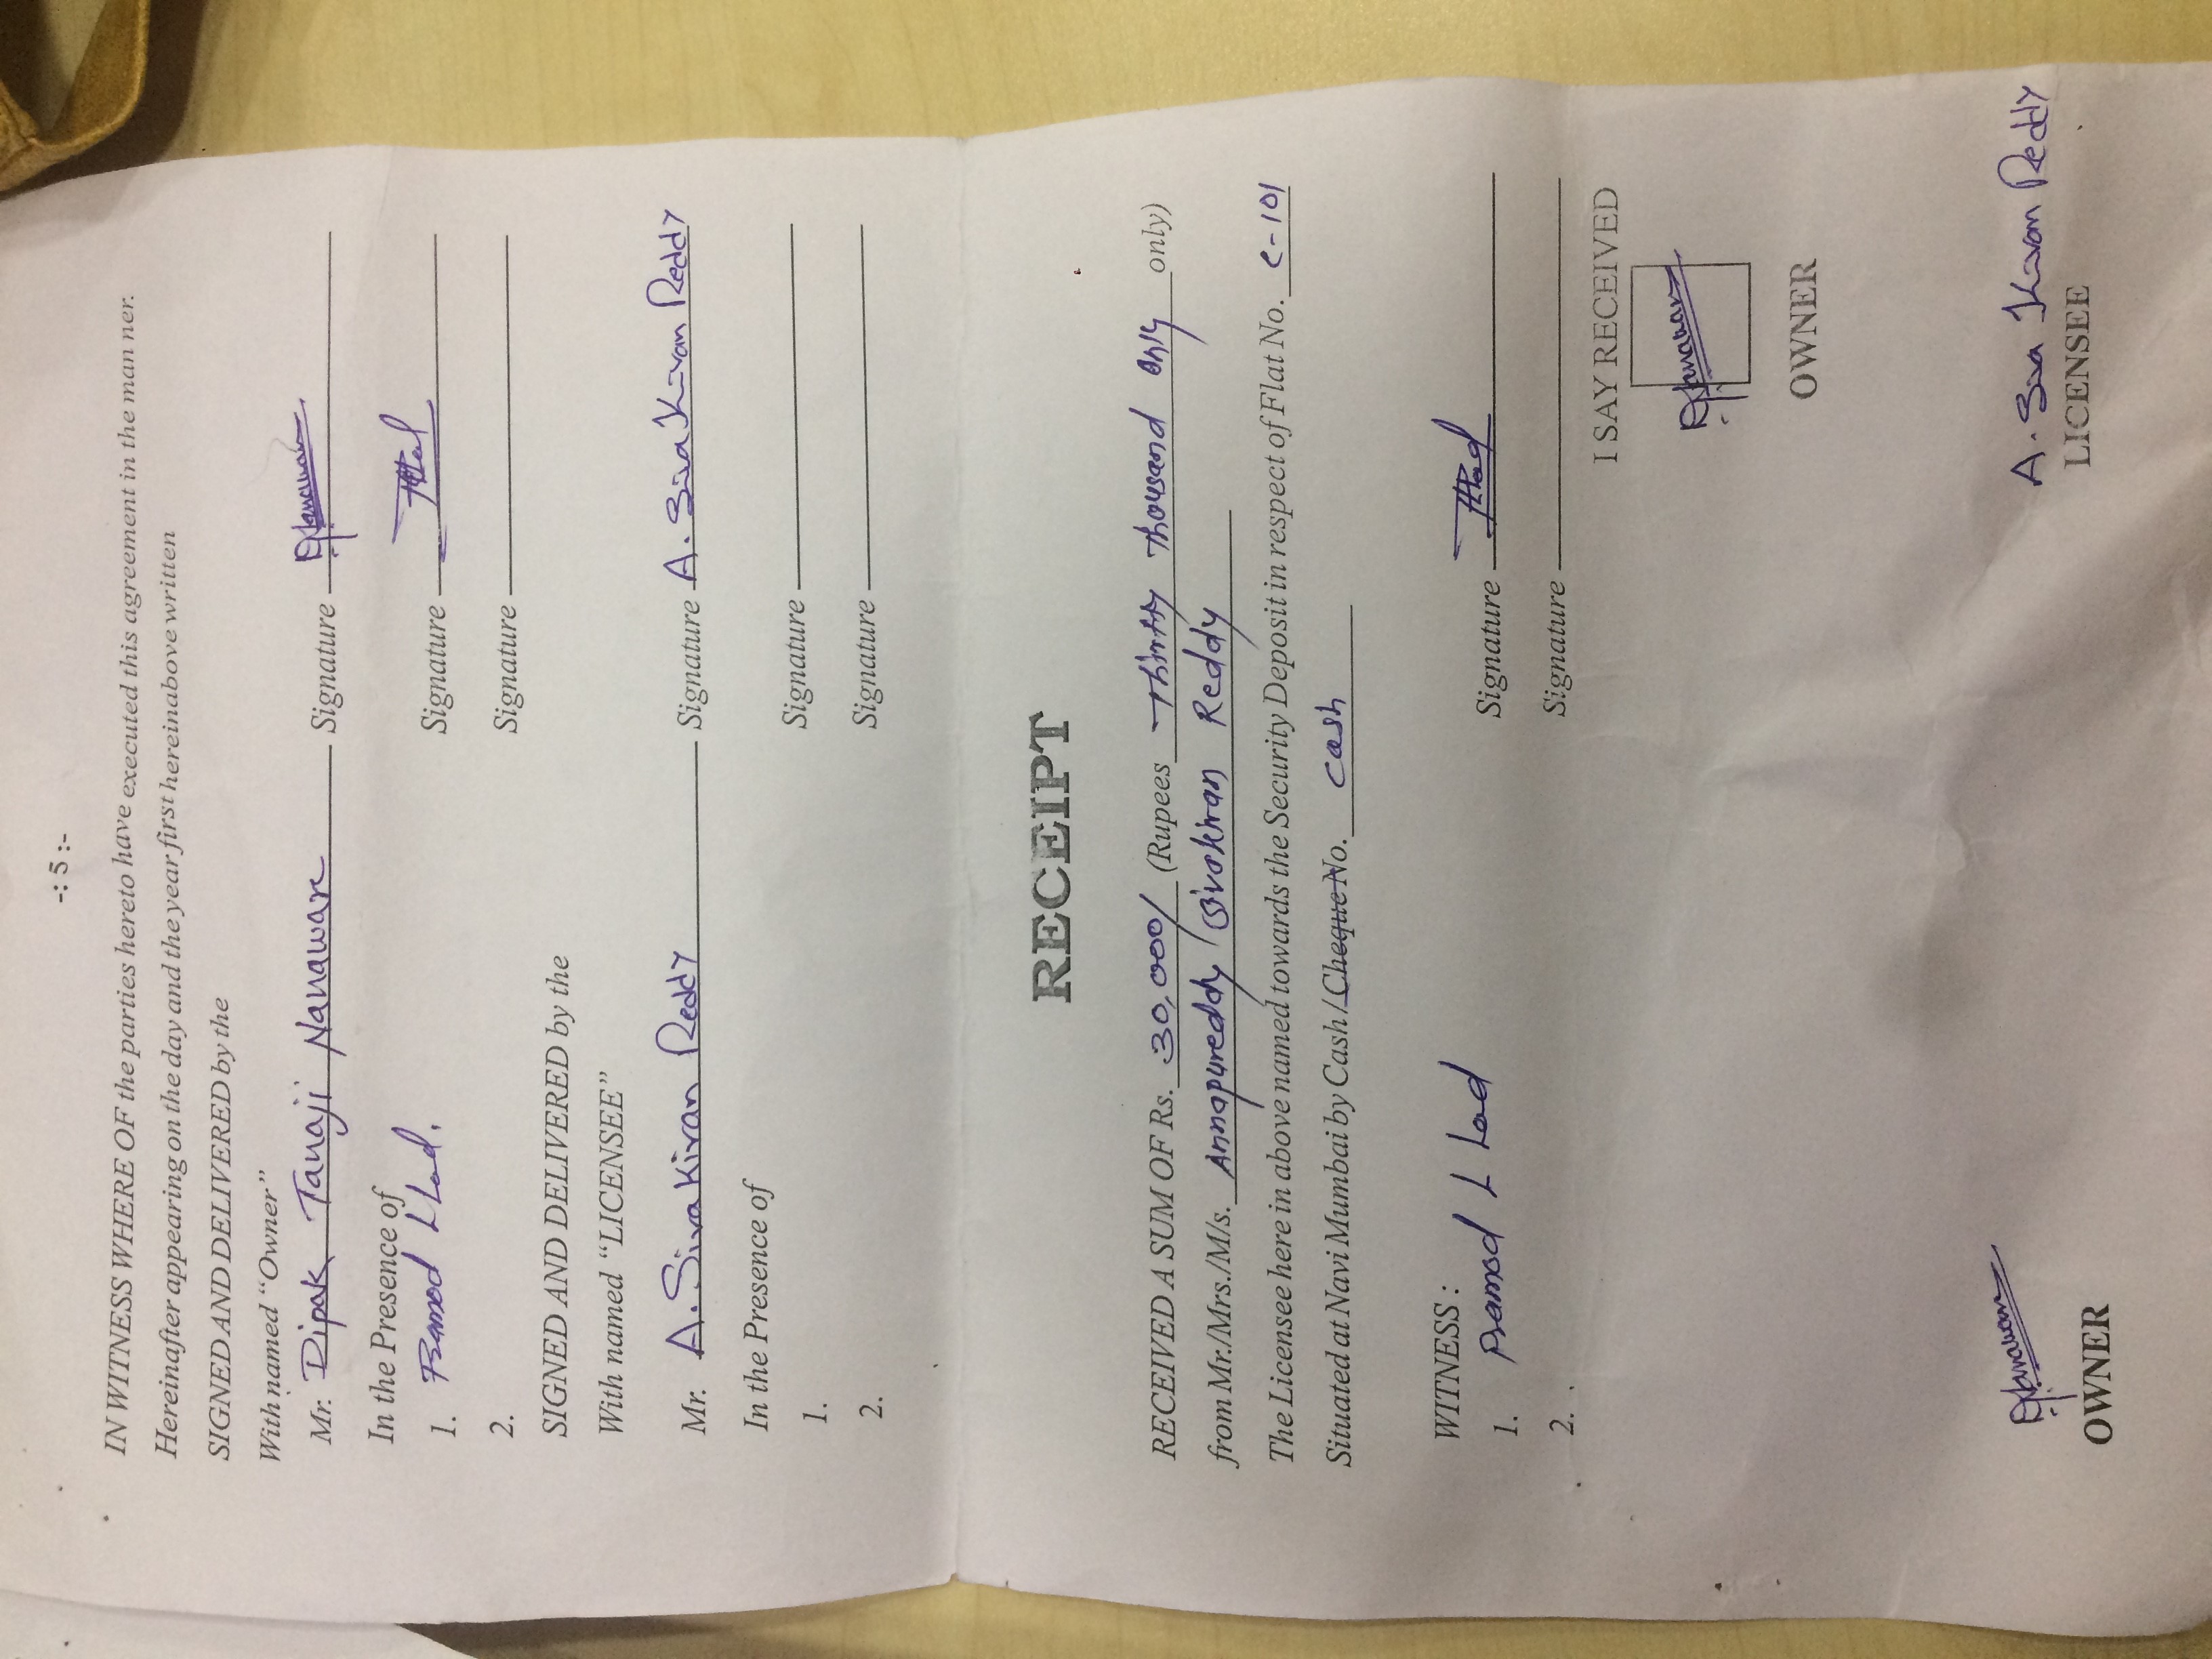 -: 5 :-
IN WITNESS WHERE OF the parties hereto have executed this agreement in the man ner.
Hereinafter appearing on the day and the year first hereinabove written
SIGNED AND DELIVERED by the
With named "Owner"
Mr. Dipak Tanaji Nanaware Signature
In the Presence of
1. Pramod L Lad. Signature
2. Signature
SIGNED AND DELIVERED by the
With named "LICENSEE"
Mr. A. Siva Kiran Reddy Signature A. Siva Kiran Reddy
In the Presence of
1. Signature
2. Signature
RECEIPT
RECEIVED A SUM OF Rs. 30,000/ (Rupees Thirty Thousand only only)
from Mr./Mrs./M/s. Annapureddy Sivakiran Reddy
The Licensee here in above named towards the Security Deposit in respect of Flat No. C-101
Situated at Navi Mumbai by Cash / Cheque No. Cash
WITNESS :
1. Pramod L Lad Signature
2. Signature
I SAY RECEIVED
OWNER
A. Siva Kiran Reddy
OWNER LICENSEE